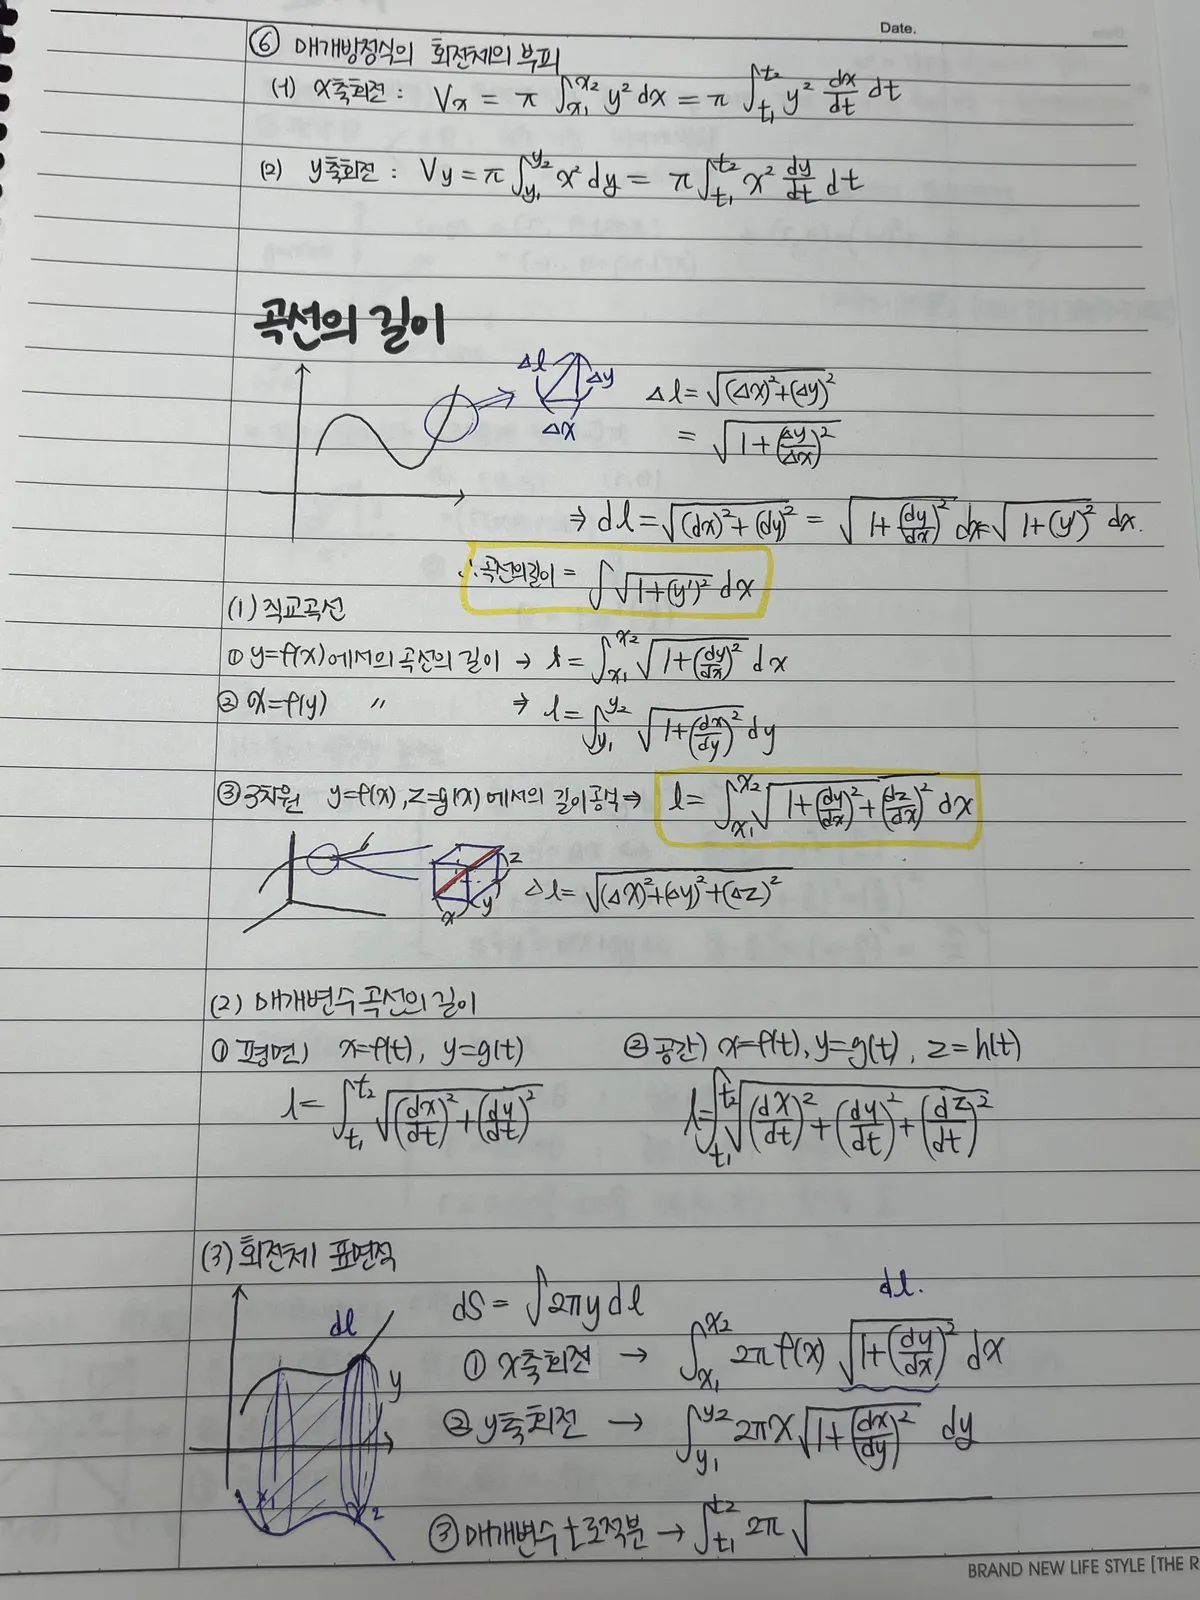 Date.
⑥ 매개방정식의 회전체의 부피
(1) x축회전 : Vx = π ∫_{x₁}^{x₂} y² dx = π ∫_{t₁}^{t₂} y² dx/dt dt
(2) y축회전 : Vy = π ∫_{y₁}^{y₂} x² dy = π ∫_{t₁}^{t₂} x² dy/dt dt
곡선의 길이
Δl Δy Δx
Δl = √((Δx)²+(Δy)²)
= √(1+(Δy/Δx)²)
⇒ dl = √((dx)²+(dy)²) = √(1+(dy/dx)²) dx = √(1+(y')²) dx.
∴ 곡선의길이 = ∫ √(1+(y')²) dx
(1) 직교곡선
① y=f(x)에서의 곡선의 길이 → l = ∫_{x₁}^{x₂} √(1+(dy/dx)²) dx
② x=f(y) 〃 ⇒ l = ∫_{y₁}^{y₂} √(1+(dx/dy)²) dy
③ 3차원 y=f(x), z=g(x)에서의 길이공식 ⇒ l = ∫_{x₁}^{x₂} √(1+(dy/dx)²+(dz/dx)²) dx
x y z
Δl = √((Δx)²+(Δy)²+(Δz)²)
(2) 매개변수 곡선의 길이
① 평면) x=f(t), y=g(t)
l = ∫_{t₁}^{t₂} √((dx/dt)²+(dy/dt)²)
② 공간) x=f(t), y=g(t), z=h(t)
l = ∫_{t₁}^{t₂} √((dx/dt)²+(dy/dt)²+(dz/dt)²)
(3) 회전체 표면적
dl y x₁ x₂
dS = ∫ 2πy dl
dl.
① x축회전 → ∫_{x₁}^{x₂} 2π f(x) √(1+(dy/dx)²) dx
② y축회전 → ∫_{y₁}^{y₂} 2πx √(1+(dx/dy)²) dy
③ 매개변수 t로적분 → ∫_{t₁}^{t₂} 2π √
BRAND NEW LIFE STYLE [THE R